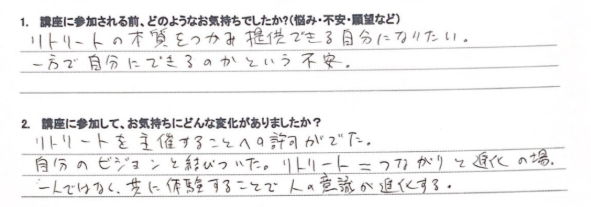 1. 講座に参加される前、どのようなお気持ちでしたか?(悩み・不安・願望など)
リトリートの本質をつかみ提供できる自分になりたい。
一方で自分にできるのかという不安。
2. 講座に参加して、お気持ちにどんな変化がありましたか?
リトリートを主催することへの許可がでた。
自分のビジョンと結びついた。リトリート=つながりと進化の場。
一人ではなく、共に体験することで人の意識が進化する。